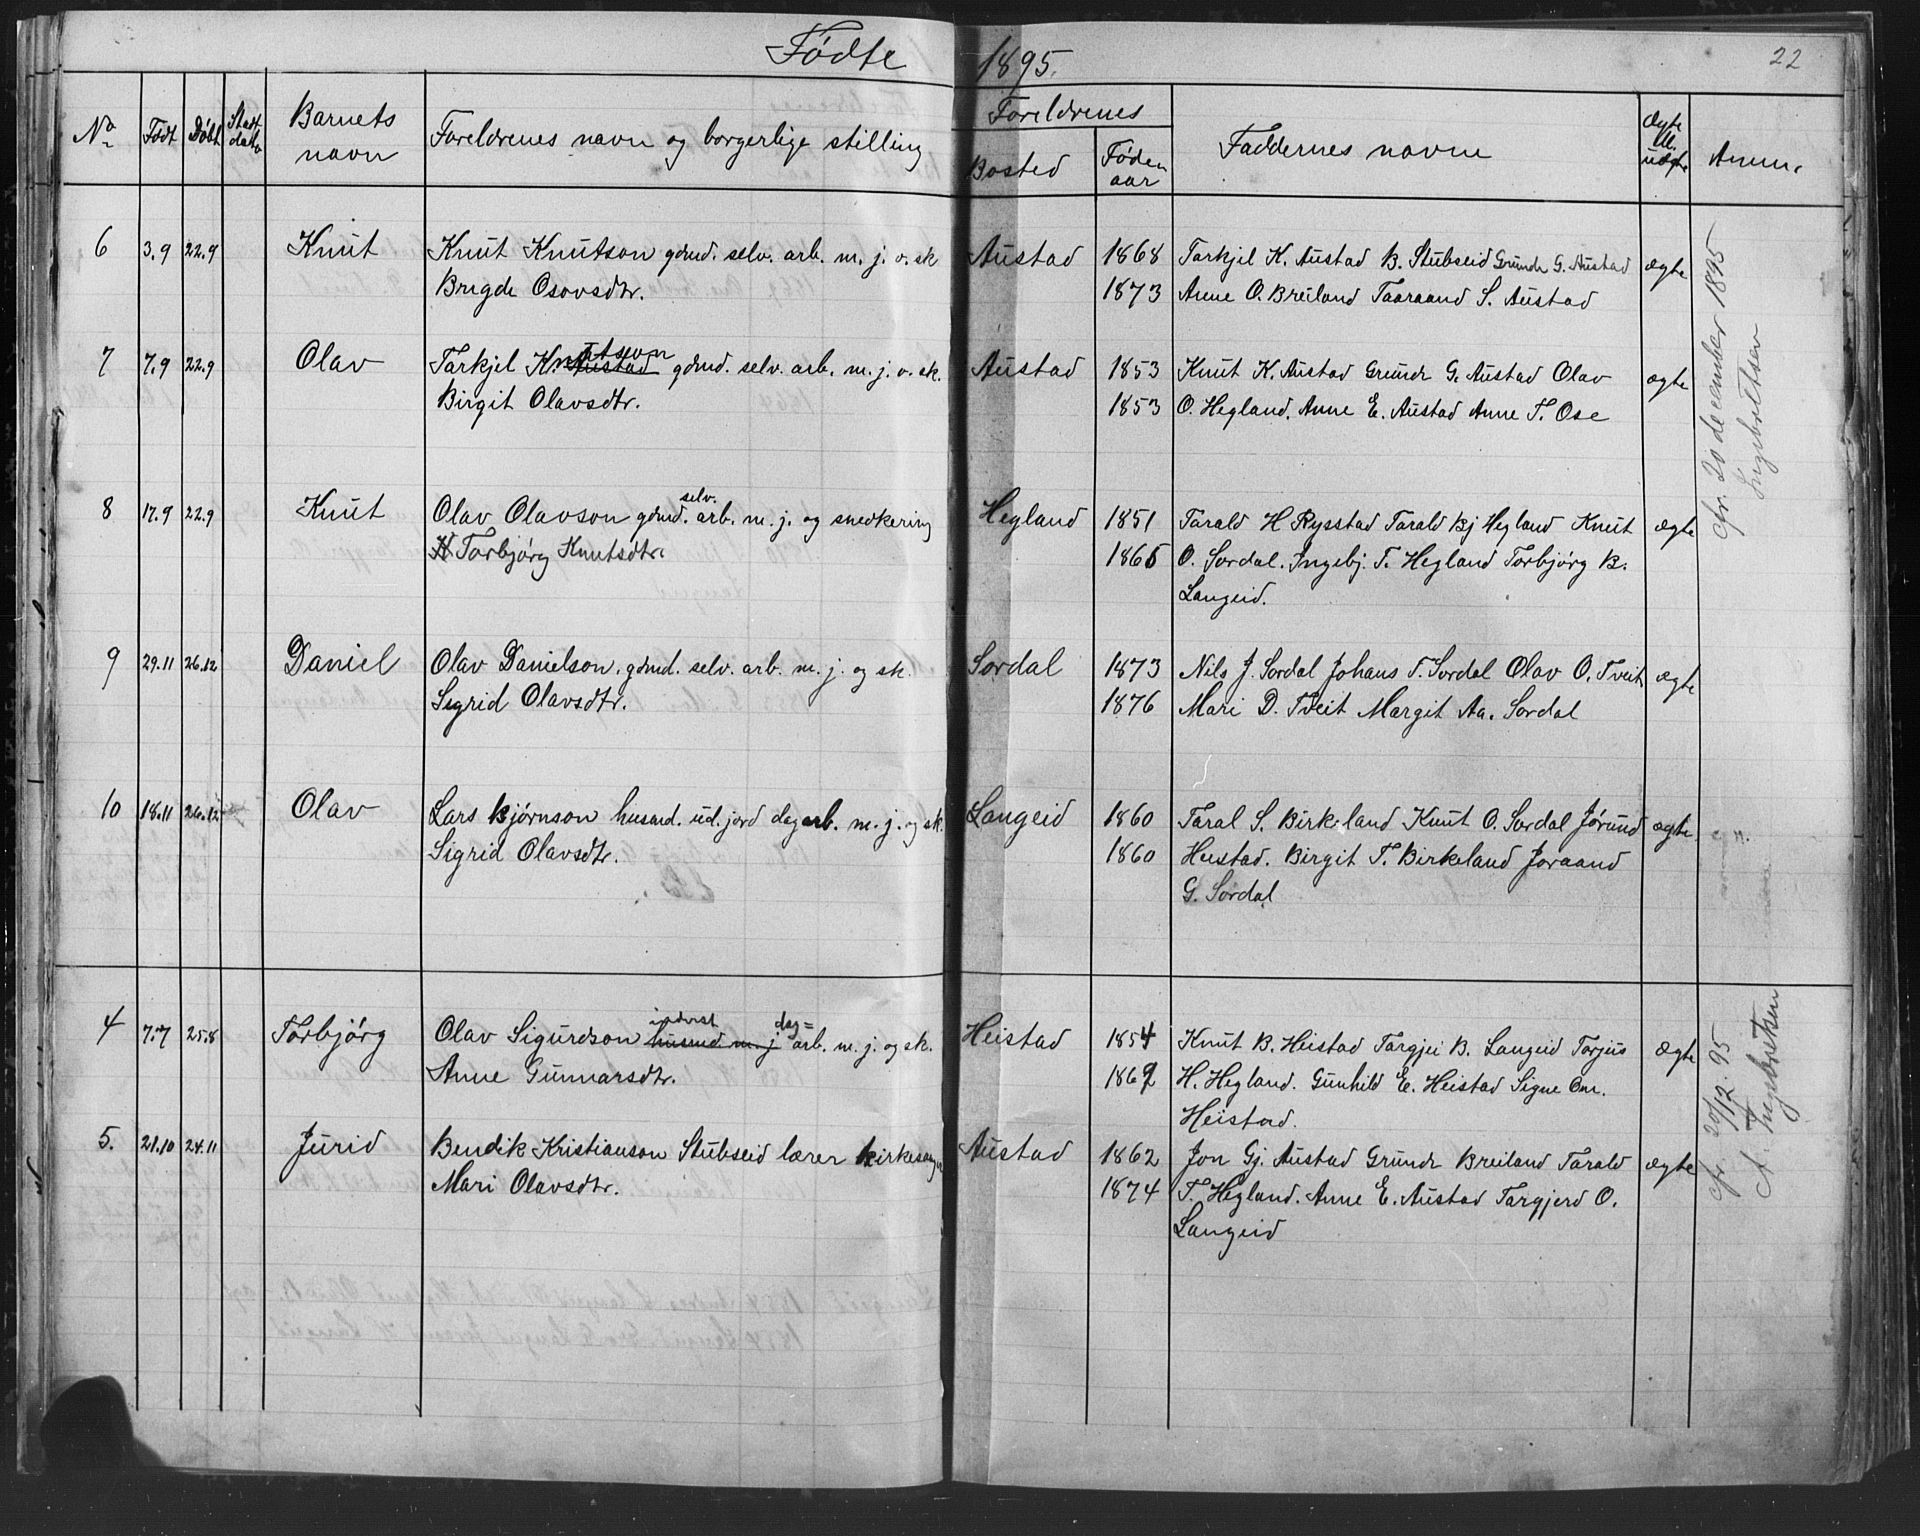 Fødte 1895. 22
No Født Døbt Stadf. dato Barnets navn Foreldrenes navn og borgerlige stilling Foreldrenes Bosted Føde aar Faddernes navne Ægte ell. uægte Anm.
6 3.9 22.9 Knut Knut Knutson gdmd. selv. arb. m. j. o. sk Austad 1868 Tarkjel K. Austad B. Stubseid Grunde G. Austad ægte
Brugde Osovsdtr. 1873 Anne O. Breiland Taaraand S. Austad
7 7.9 22.9 Olav Tarkjel Knutson gdmd. selv. arb. m. j. o. sk. Austad 1853 Knut K. Austad Grunde G. Austad Olav ægte
Birgit Olavsdtr. 1853 O. Hegland. Anne E. Austad Anne T. Ose
8 17.9 22.9 Knut Olav Olavson gdmd. selv. arb. m. j. og snedkering Hegland 1851 Tarald H Rysstad Tarald Bj Hegland Knut ægte
Torbjørg Knutsdtr. 1865 O. Sordal. Ingebj. T. Hegland Torbjørg B.
Langeid.
9 29.11 26.12 Daniel Olav Danielson. gdmd. selv. arb. m. j. og sk. Sordal 1873 Nils J. Sordal Johans T. Sordal Olav O. Tveit ægte
Sigrid Olavsdtr. 1876 Mari D. Tveit Margit Aa. Sordal
10 18.11 26.12 Olav Lars Bjørnson husmd. ud. jord dagarb. m. j. og sk. Langeid 1860 Taral S. Birkeland Knut O. Sordal Jørund ægte.
Sigrid Olavsdtr. 1860 Heistad. Birgit T. Birkeland Joraand
G. Sordal
cfr. 20 december 1895
Ingebretsen
4 7.7 25.8 Torbjørg Olav Sigurdson inderst husmd m. j dag= arb. m. j. og sk. Heistad 1854 Knut B. Heistad Targjei B. Langeid Torjus ægte
Anne Gunnarsdtr. 1869 H. Hegland. Gunhild E. Heistad Signe Om.
Heistad.
5. 21.10 24.11 Jurid Bendik Kristianson Stubseid lærer kirkesanger Austad 1862 Jon Gj. Austad Grunde Breiland Tarald ægte
Mari Olavsdtr. 1874 T. Hegland. Anne E. Austad Targjerd O.
Langeid
cfr 20/12 95
A. Ingebretsen